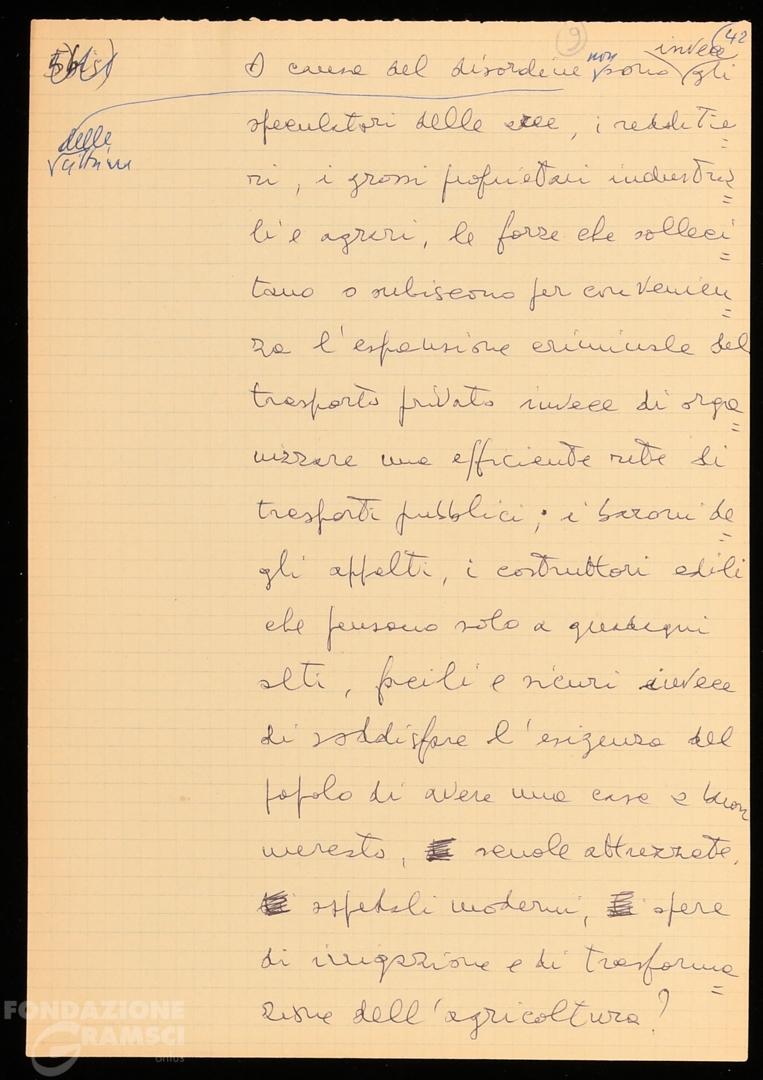 9
42
5 bis)
A causa del disordine non sono invece gli
delle vittime
speculatori delle aree, i reddittie=
ri, i grossi proprietari industria=
li e agrari, le forze che solleci=
tano o subiscono per convenien=
za l'espansione criminale del
trasporto privato invece di orga=
nizzare una efficiente rete di
trasporti pubblici; i baroni de=
gli appalti, i costruttori edili
che pensano solo a guadagni
alti, facili e sicuri invece
di soddisfare l'esigenza del
popolo di avere una casa a buon
mercato, scuole attrezzate,
ospedali moderni, opere
di irrigazione e di trasforma=
zione dell'agricoltura?
FONDAZIONE
GRAMSCI
onlus